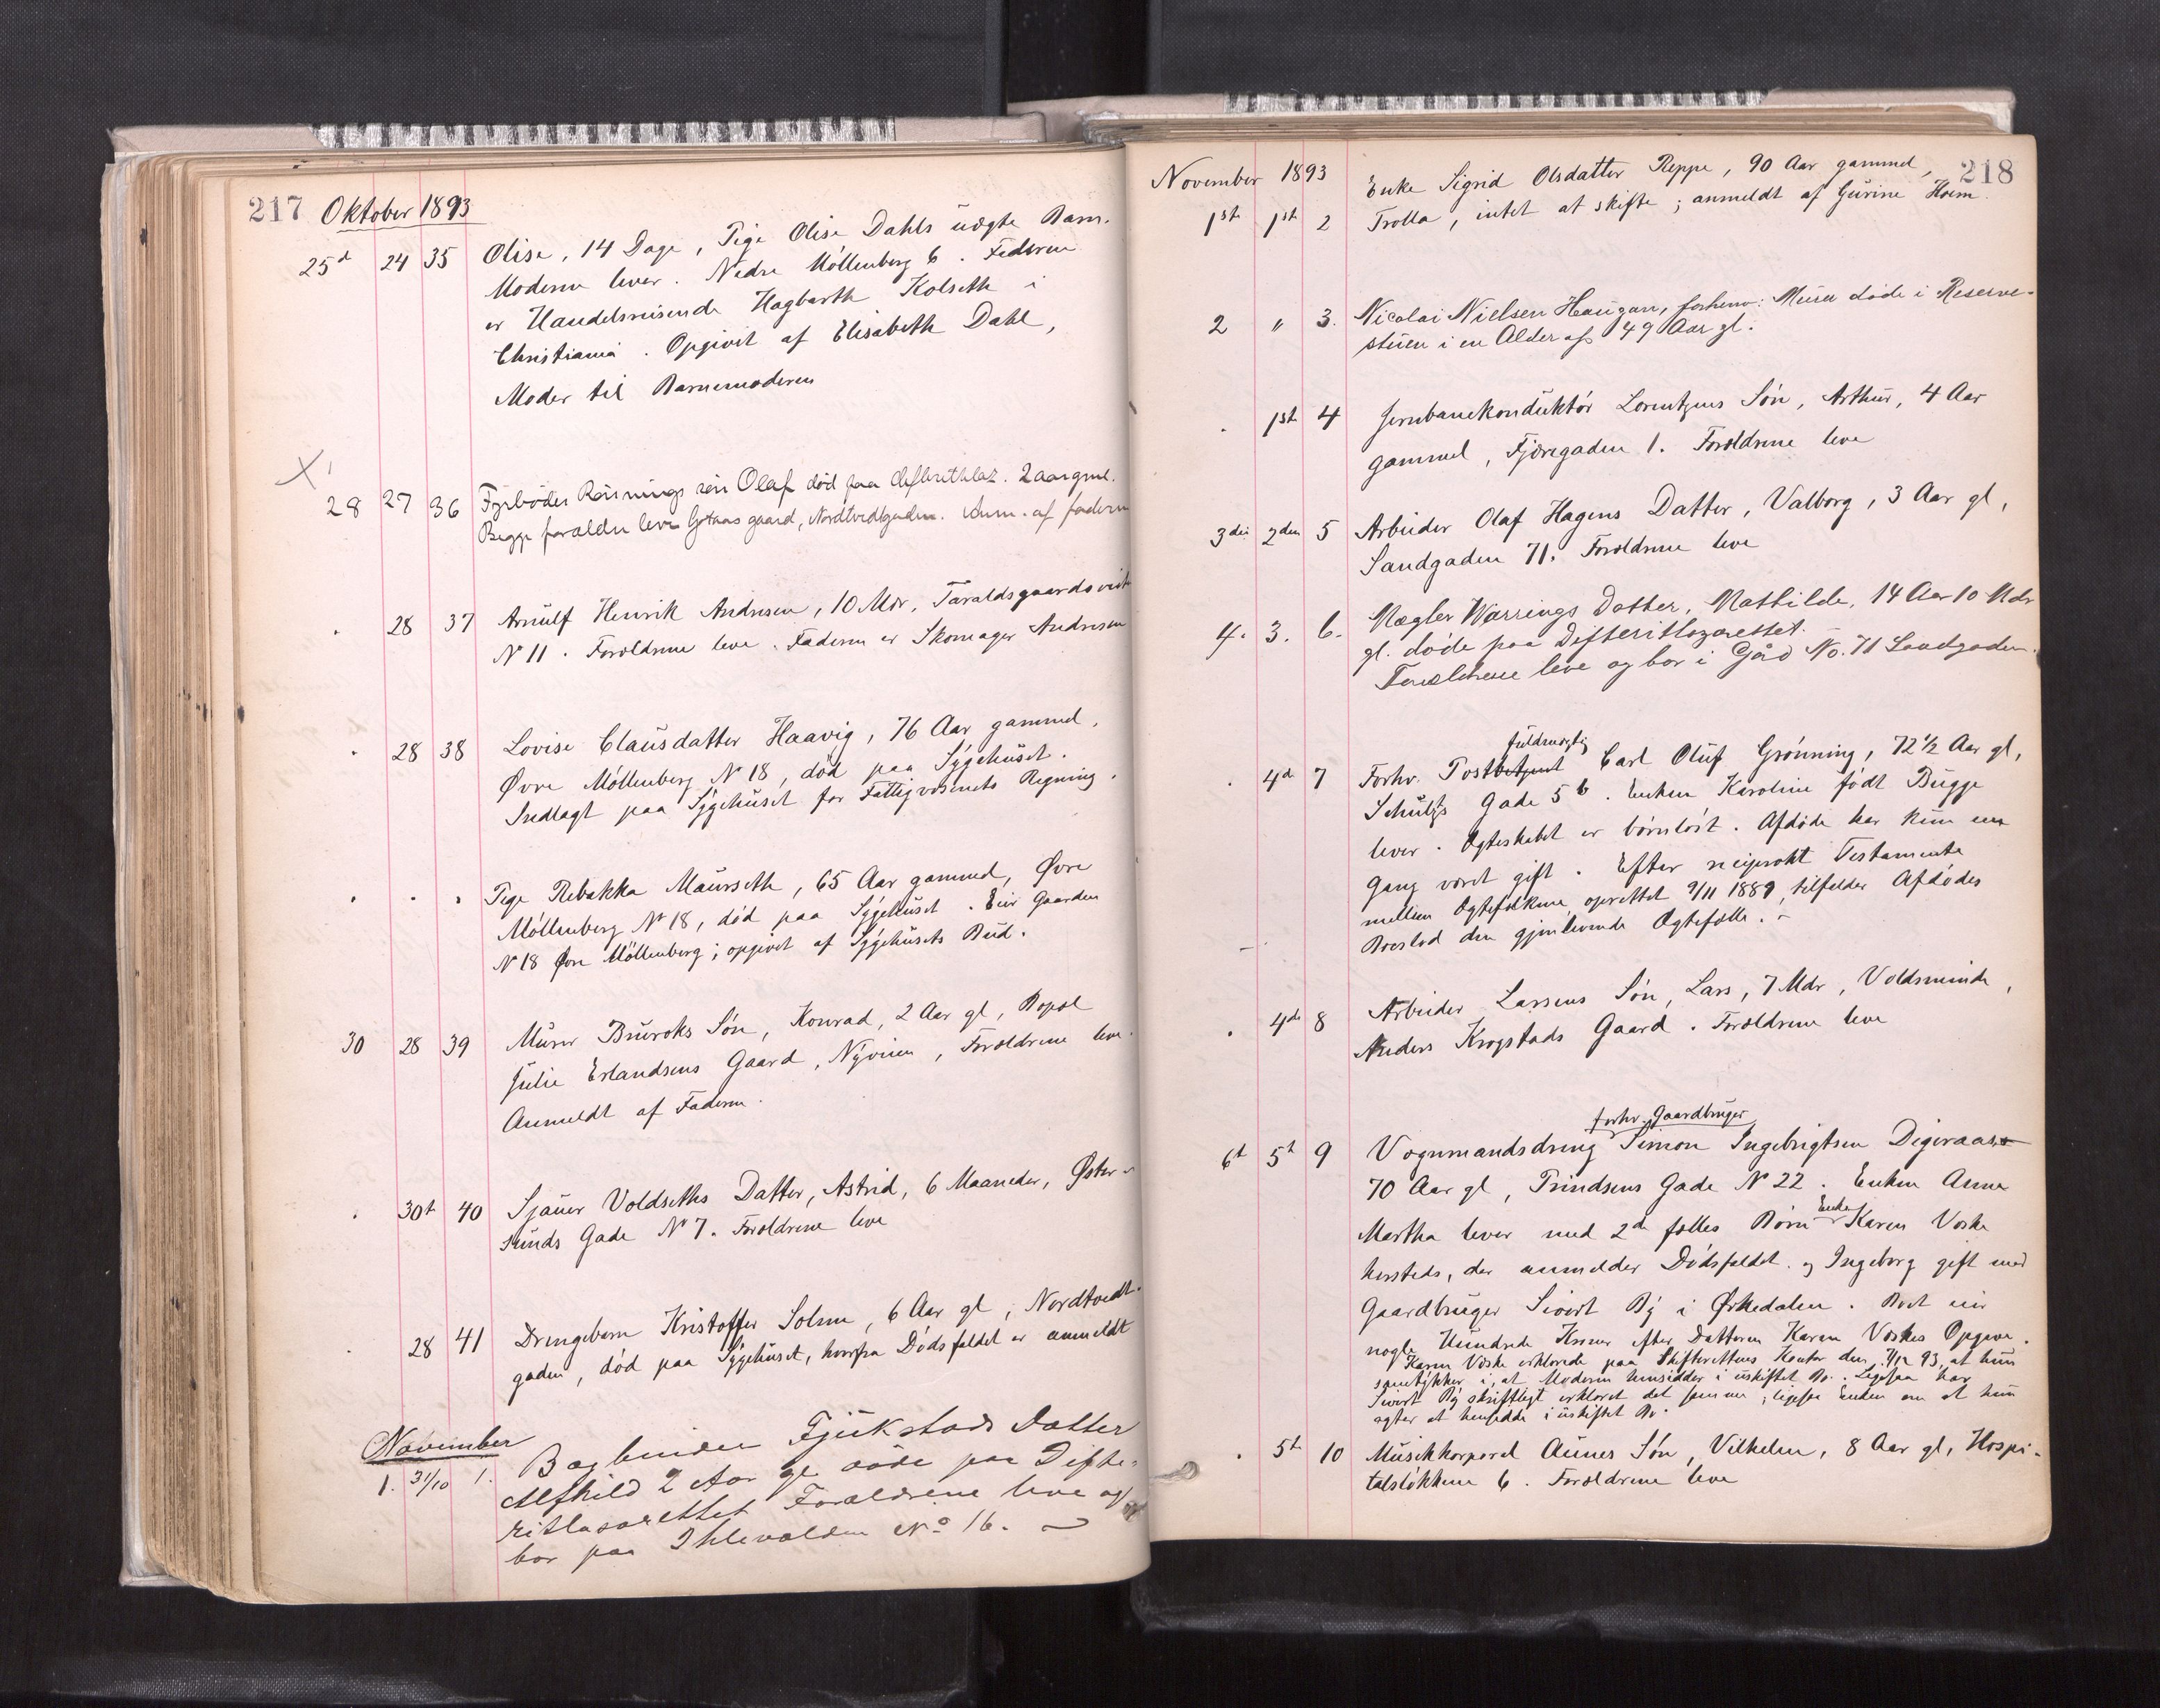 217 Oktober 1893
25d 24 35 Olise, 14 Dage, Pige Olise Dahls uægte Barn.
Moderen lever. Nedre Möllenberg 6. Faderen
er Handelsreisende Hagbarth Kolseth i
Christiania. Opgivet af Elisabeth Dahl,
Moder til Barnemoderen
28 27 36 Fyrbøder Rönnings søn Olaf død paa difteritlaz. 2 aar gml.
Begge forældre leve Gotaas gaard, Nordtvedtgaden. Anm. af faderen
. 28 37 Arnulf Henrik Andresen, 10 Mdr, Taraldsgaardsveit
N 11. Forældrene leve. Faderen er Skomager Andresen
. 28 38 Lovise Clausdatter Haavig, 76 Aar gammel,
Øvre Möllenberg N 18, död paa Sygehuset.
Indlagt paa Sygehuset for Fattigvæsenets Regning.
. . . Pige Rebekka Maurseth, 65 Aar gammel, Øvre
Möllenberg N 18, död paa Sygehuset. Eier Gaarden
N 18 Øvre Möllenberg; opgivet af Sygehusets Bud.
30 28 39 Murer Bruroks Sön, Konrad, 2 Aar gl, Bopæl
Julie Erlandsens Gaard, Nyveien, Forældrene leve.
Anmeldt af Faderen.
. 30t 40 Sjauer Voldseths Datter, Astrid, 6 Maaneder, Øster-
sunds Gade N 7. Forældrene leve
. 28 41 Drengebarn Kristoffer Solem, 6 Aar gl, Nordtvedt-
gaden, död paa Sygehuset, hvorfra Dödsfaldet er anmeldt
November
1. 31/10 1. Bagbinder Fjukstads Datter
Alfhild 2 Aar gl döde paa Difte-
ritlasarettet Forældrene leve og
bor paa Ihlevolden No 16.
November 1893 218
1st 1st 2 Enke Sigrid Olsdatter Reppe, 90 Aar gammel,
Trolla, intet at skifte; anmeldt af Gurine Hoem.
2 " 3. Nicolai Nielsen Haugan, forhenv: Murer döde i Reserve-
stuen i en Alder af 49 Aar gl.
. 1st 4 Jernbanekonduktör Lorentzens Sön, Arthur, 4 Aar
gammel, Fjæregaden 1. Forældrene leve
3die 2den 5 Arbeider Olaf Hagens Datter, Valborg, 3 Aar gl,
Sandgaden 71. Forældrene leve
4. 3. 6. Mægler Warrings Datter, Mathilde, 14 Aar 10 Mdr
gl. döde paa Difteritlazarettet.
Forældrene leve og bor i Gård No. 71 Sandgaden.
fuldmægtig
. 4d 7 Forhv. Postbetjent Carl Oluf Grønning, 72 1/2 Aar gl,
Schultz Gade 5 b. Enken Karoline födt Bugge
lever. Ægteskabet er börnlöst. Afdöde har kun en
Gang været gift. Efter reciprokt Testamente
mellem Ægtefolkene oprettet 9/11 1889, tilfalder Afdödes
Boeslod den gjenlevende Ægtefælle.
. 4de 8 Arbeider Larsens Sön, Lars, 7 Mdr, Voldsminde,
Anders Krogstads Gaard. Forældrene leve
forhv. Gaardbruger
6t 5t 9 Vognmandsdreng Simon Ingebrigtsen Digeraas
70 Aar gl, Prindsens Gade N 22. Enken Anne
Martha lever med 2de fælles Börn Enke Karen Voske
hersteds, der anmelder Dödsfaldet og Ingeborg gift med
Gaardbruger Sivert By i Ørkedalen. Boet eier
nogle Hundrede Kroner efter Datteren Karen Voskes Opgave.
Karen Voske erklærede paa Skifterettens Kontor den 7/12 93, at hun
samtykker i, at Moderen hensidder i uskiftet Bo. Ligesaa har
Sivert By skriftligt erklæret det samme, ligesaa Enken om at hun
agter at hensidde i uskiftet Bo.
. 5t 10 Musikkorporal Aunes Sön, Vilhelm, 8 Aar gl, Hospi-
talslökkene 6. Forældrene leve